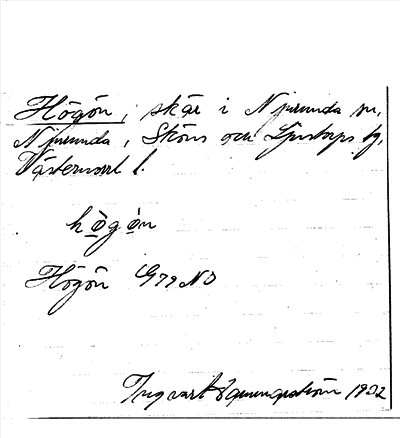 Högön, skär i Njurunda sn,
Njurunda, Sköns och Ljustorps tg,
Västernorrl l.
högön
Högön G79 NO
Ingvart 1932